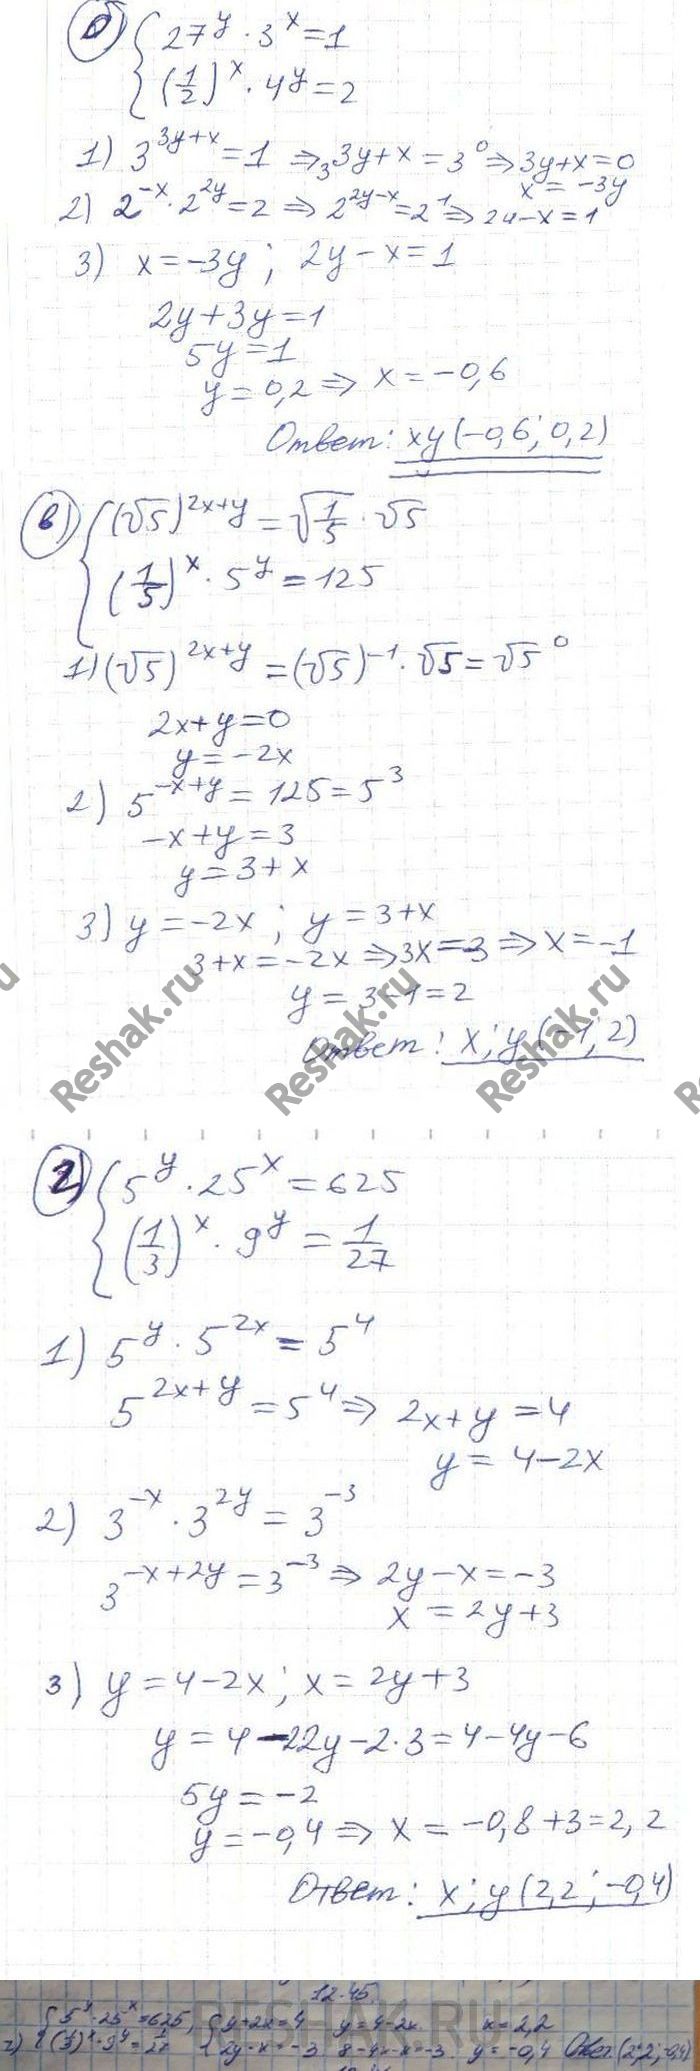 б) { 27^y · 3^x = 1
(1/2)^x · 4^y = 2
1) 3^(3y+x) = 1 ⇒ 3^(3y+x) = 3^0 ⇒ 3y+x=0
x = -3y
2) 2^(-x) · 2^(2y) = 2 ⇒ 2^(2y-x) = 2^1 ⇒ 2y-x=1
3) x = -3y ; 2y - x = 1
2y + 3y = 1
5y = 1
y = 0,2 ⇒ x = -0,6
Ответ: xy (-0,6; 0,2)
в) { (√5)^(2x+y) = √(1/5) · √5
(1/5)^x · 5^y = 125
1) (√5)^(2x+y) = (√5)^(-1) · √5 = √5^0
2x+y=0
y = -2x
2) 5^(-x+y) = 125 = 5^3
-x+y = 3
y = 3+x
3) y = -2x ; y = 3+x
3+x = -2x ⇒ 3x = -3 ⇒ x = -1
y = 3-1 = 2
Ответ: x; y (-1; 2)
Reshak.ru Reshak.ru Reshak.ru
г) { 5^y · 25^x = 625
(1/3)^x · 9^y = 1/27
1) 5^y · 5^(2x) = 5^4
5^(2x+y) = 5^4 ⇒ 2x+y = 4
y = 4-2x
2) 3^(-x) · 3^(2y) = 3^(-3)
3^(-x+2y) = 3^(-3) ⇒ 2y-x = -3
x = 2y+3
3) y = 4-2x ; x = 2y+3
y = 4-2·2y-2·3 = 4-4y-6
5y = -2
y = -0,4 ⇒ x = -0,8+3 = 2,2
Ответ: x; y (2,2; -0,4)
12.45.
RESHAK.RU
г) { 5^y · 25^x = 625, { y+2x=4 y=4-2x x=2,2
(1/3)^x · 9^y = 1/27 2y-x=-3 8-4x-x=-3 y=-0,4 Ответ (2,2; -0,4)